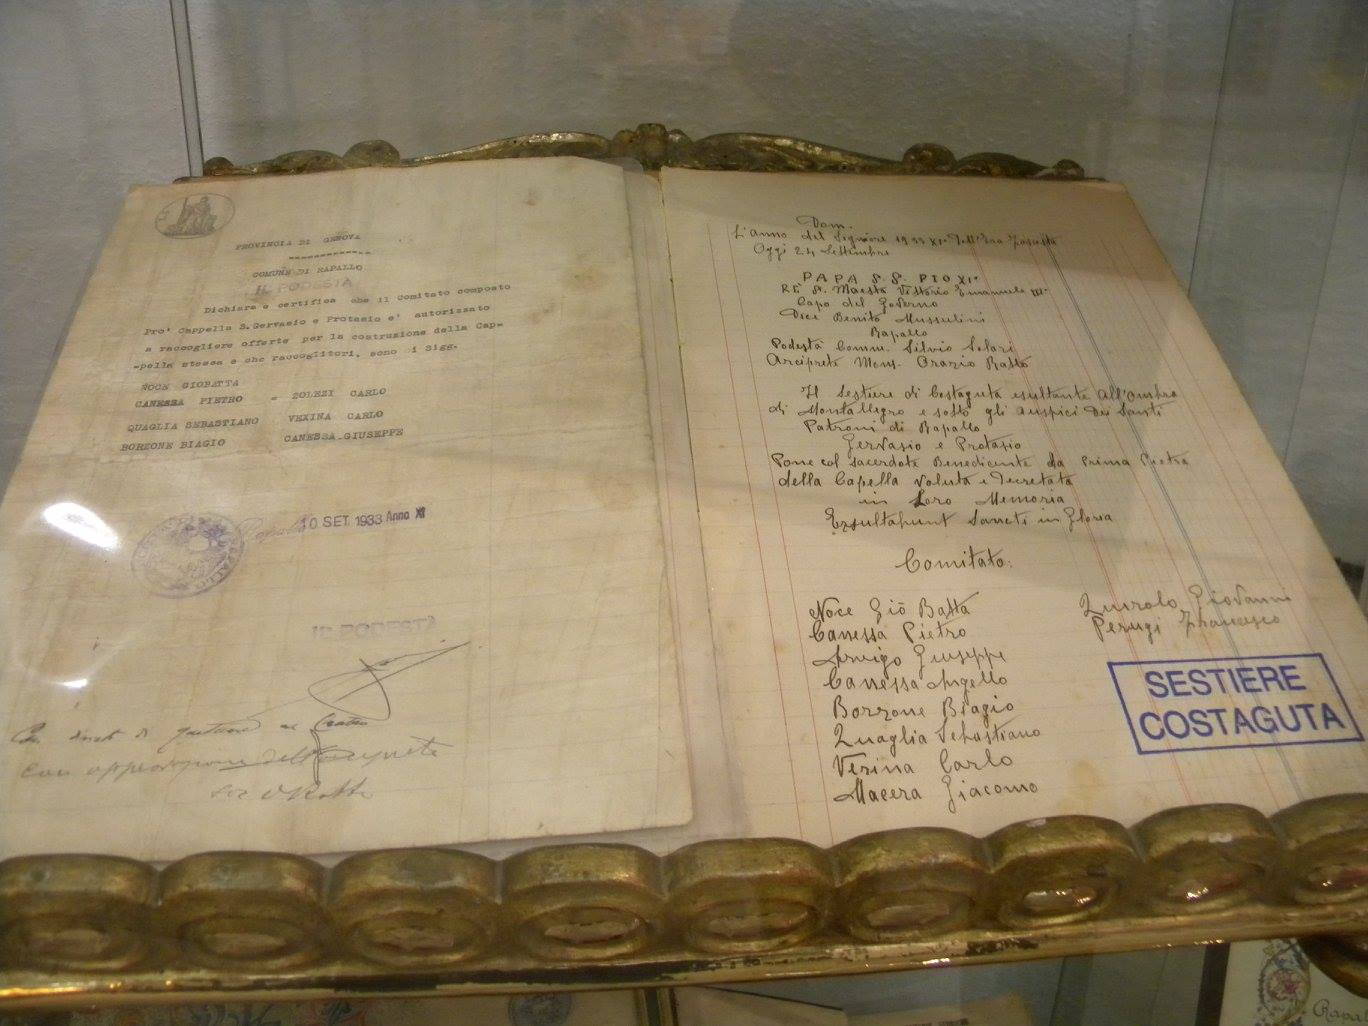 PROVINCIA DI GENOVA
COMUNE DI RAPALLO
IL PODESTÀ
Dichiara e certifica che il comitato composto
Pro' Cappella S.Gervasio e Protasio e' autorizzato
a raccogliere offerte per la costruzione della Cap-
-pella stessa e che raccoglitori, sono i Sigg.
NOCE GIOBATTA
CANESSA PIETRO = ZOLEZI CARLO
QUAGLIA SEBASTIANO VEXINA CARLO
BORZONE BIAGIO CANESSA GIUSEPPE
10 SET. 1933 Anno XI
IL PODESTÀ
Con approvazione
Dom.
L'anno del Signore 1933 XI° Dell'Era Fascista
Oggi 24 Settembre
PAPA S.S. PIO XI°
RE S. Maestà Vittorio Emanuele III.
Capo del Governo
Duce Benito Mussulini
Rapallo
Podestà Comm. Silvio Solari
Arciprete Mons. Orazio Ratto
Il Sestiere di Costaguta esultante All'Ombra
di Montallegro e sotto gli Auspici Dei Santi
Patroni di Rapallo
Gervasio e Protasio
Pone col Sacerdote Benedicente la Prima Pietra
della Capella voluta e Decretata
in Loro Memoria
Exsultabunt Sancti in Gloria
Comitato:
Noce Giō Batta
Canessa Pietro
Arvigo Giuseppe
Canessa Angello
Borzone Biagio
Quaglia Sebastiano
Vexina Carlo
Macera Giacomo
Giovanni
Perugi Francesco
SESTIERE
COSTAGUTA